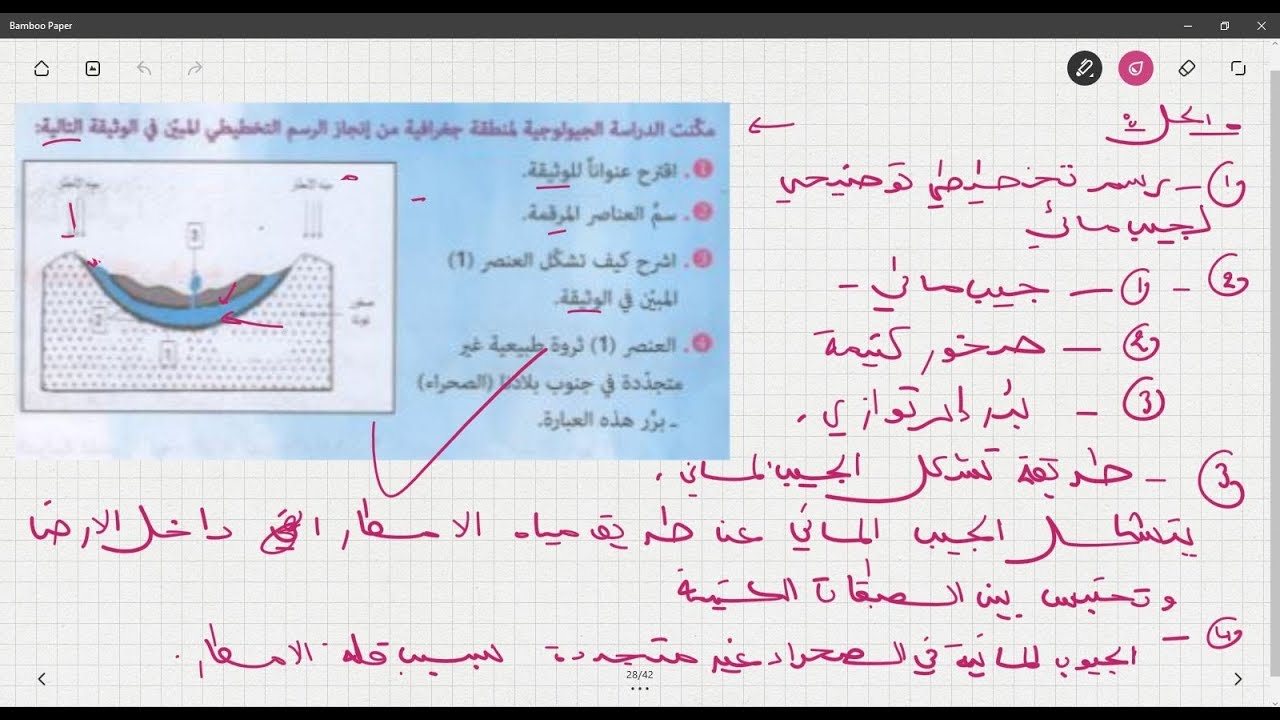 Bamboo Paper
مكّنت الدراسة الجيولوجية لمنطقة جغرافية من إنجاز الرسم التخطيطي المبيّن في الوثيقة التالية:
1. اقترح عنواناً للوثيقة.
2. سمّ العناصر المرقمة.
3. اشرح كيف تشكّل العنصر (1)
المبيّن في الوثيقة.
4. العنصر (1) ثروة طبيعية غير
متجدّدة في جنوب بلادنا (الصحراء)
ـ برّر هذه العبارة.
مياه الأمطار
مياه الأمطار
3
2
1
الحل:
1 - رسم تخطيطي توضيحي
لجيب مائي
2 - 1 - جيب مائي -
2 - صخور كتيمة
3 - بئر ارتوازي .
3 - طريقة تشكل الجيب المائي .
يتشكل الجيب المائي عن طريق مياه الامطار داخل الارض
و تحتبس بين الكتيمة
4 - الجيوب المائية في الصحراء غير متجددة بسبب قلة الامطار .
28/42